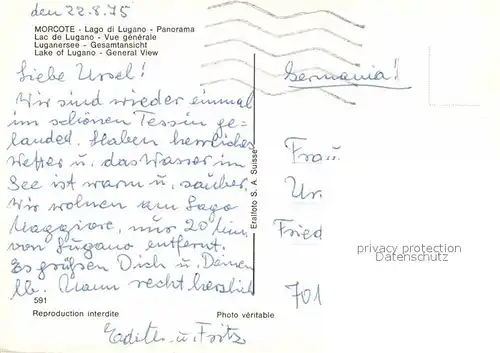 den 22.8.75
MORCOTE - Lago di Lugano - Panorama
Lac de Lugano - Vue générale
Luganersee - Gesamtansicht
Lake of Lugano - General View
Liebe Ursel!
Wir sind wieder einmal
im schönen Tessin ge=
landed. Haben herrliches
Wetter u. das Wasser im
See ist warm u. sauber.
Wir wohnen am Lago
Maggiore, nur 20 km
von Lugano entfernt.
Es grüßen Dich u. Deinen
lb. Mann recht herzlich
Edith u. Fritz
591
Reproduction interdite
Photo véritable
Eralfoto S. A. Suisse
Germania!
Frau
Ur
Fried
701
privacy protection
Datenschutz